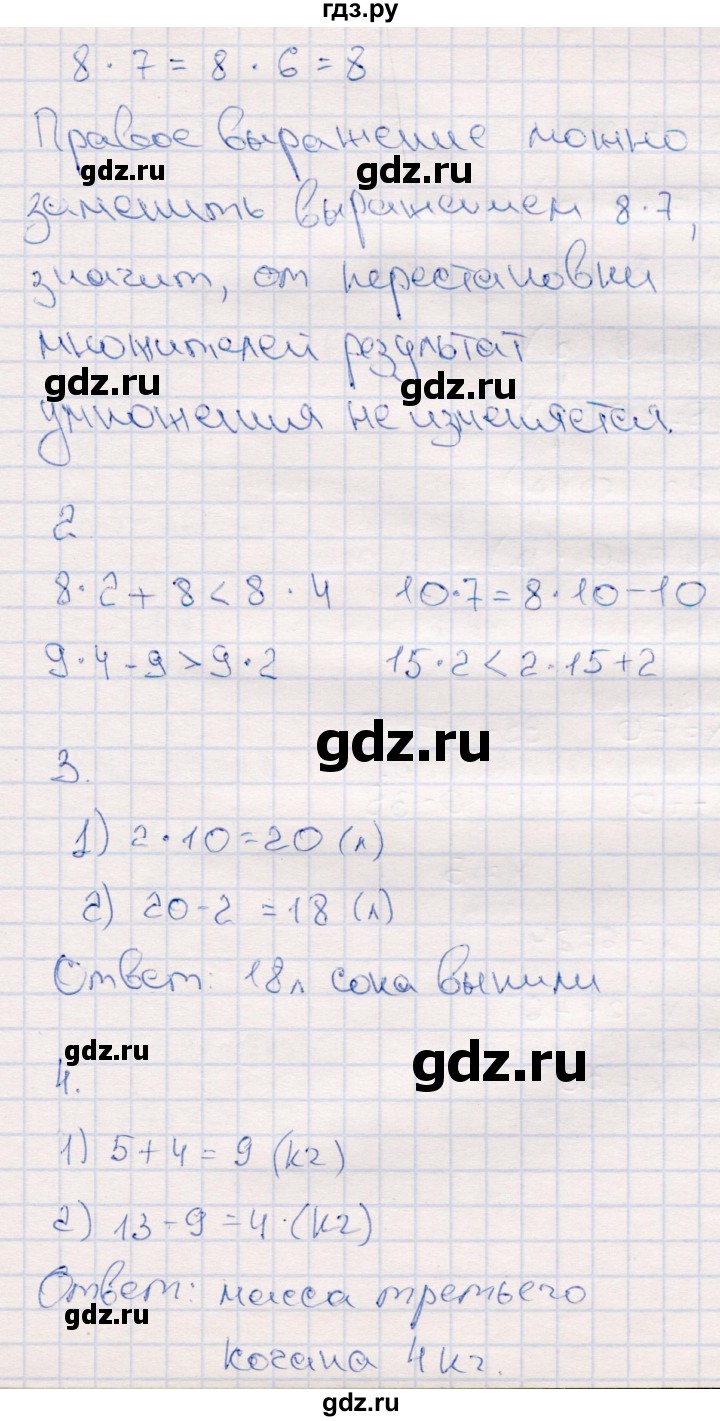 гдз.ру
8 · 7 = 8 · 6 = 8
Правое выражение можно
gdz.ru gdz.ru
заменить выражением 8·7,
значит, от перестановки
множителей результат
gdz.ru gdz.ru
умножения не изменяется.
2
8·2+8<8·4 10·7=8·10-10
9·4-9>9·2 15·2<2·15+2
gdz.ru
3.
1) 2·10=20 (л)
2) 20-2=18 (л)
Ответ: 18л сока выпили
gdz.ru gdz.ru
4.
1) 5+4=9 (кг)
2) 13-9=4·(кг)
Ответ: масса третьего
gdz.ru
кочана 4кг.
gdz.ru